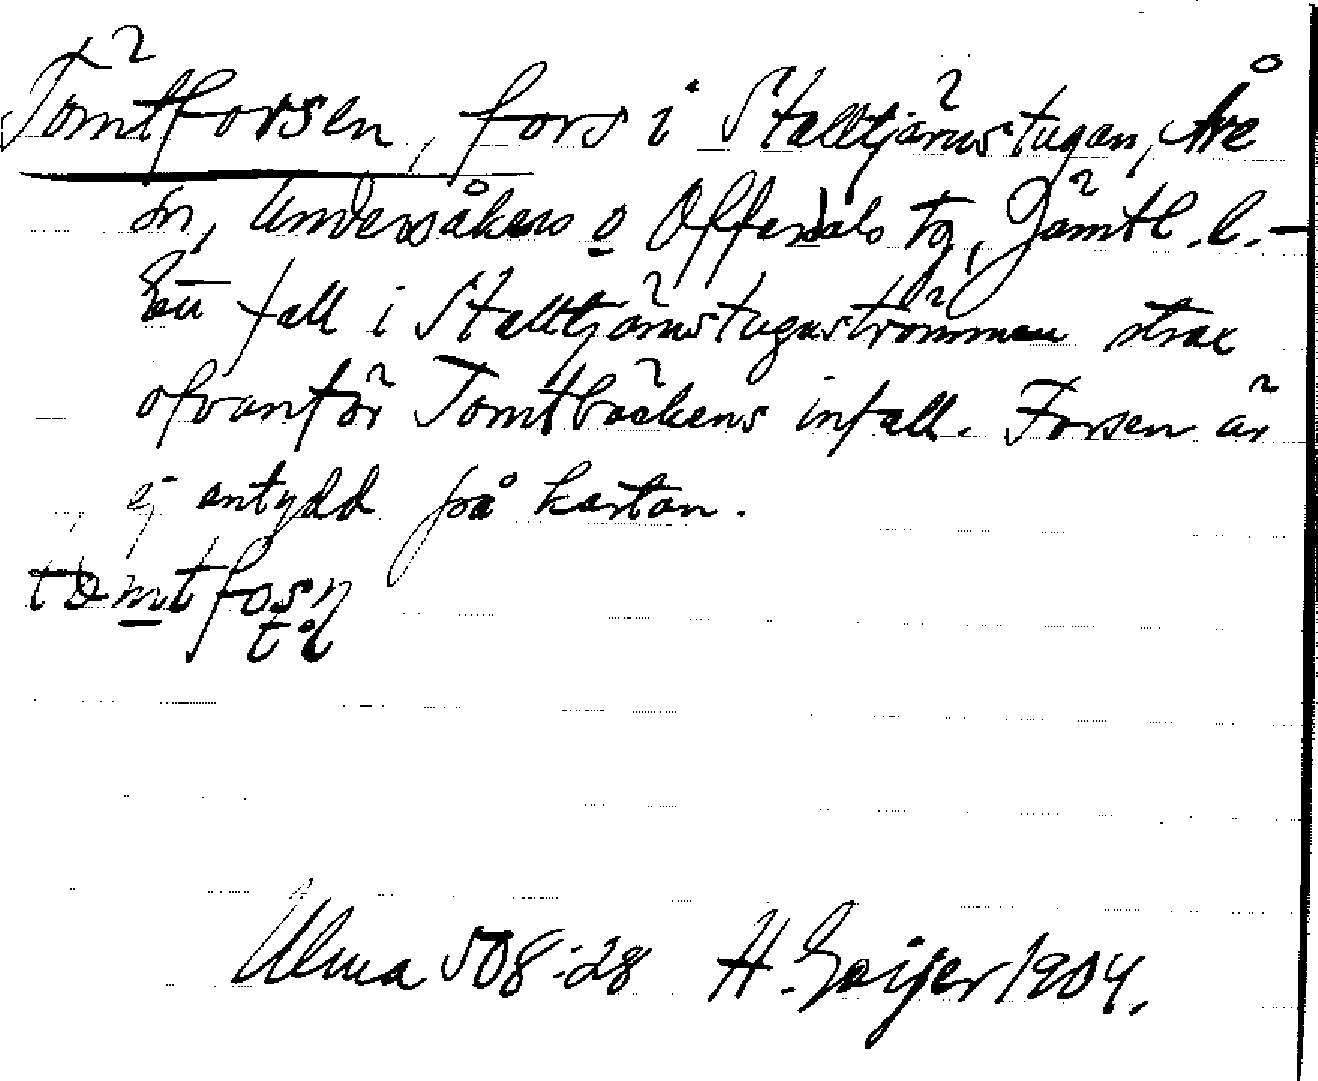 Tömtforsen, fors i Stalltjärnstugan, Åre
sn, Undersåkers o Offerdals tg, Jämtl. l. –
Ett fall i Stalltjärnstuguströmmen strax
ofvanför Tömtbäckens infall. Forsen är
ej antydd på kartan.
Ulma 508:28 H. Geijer 1904.